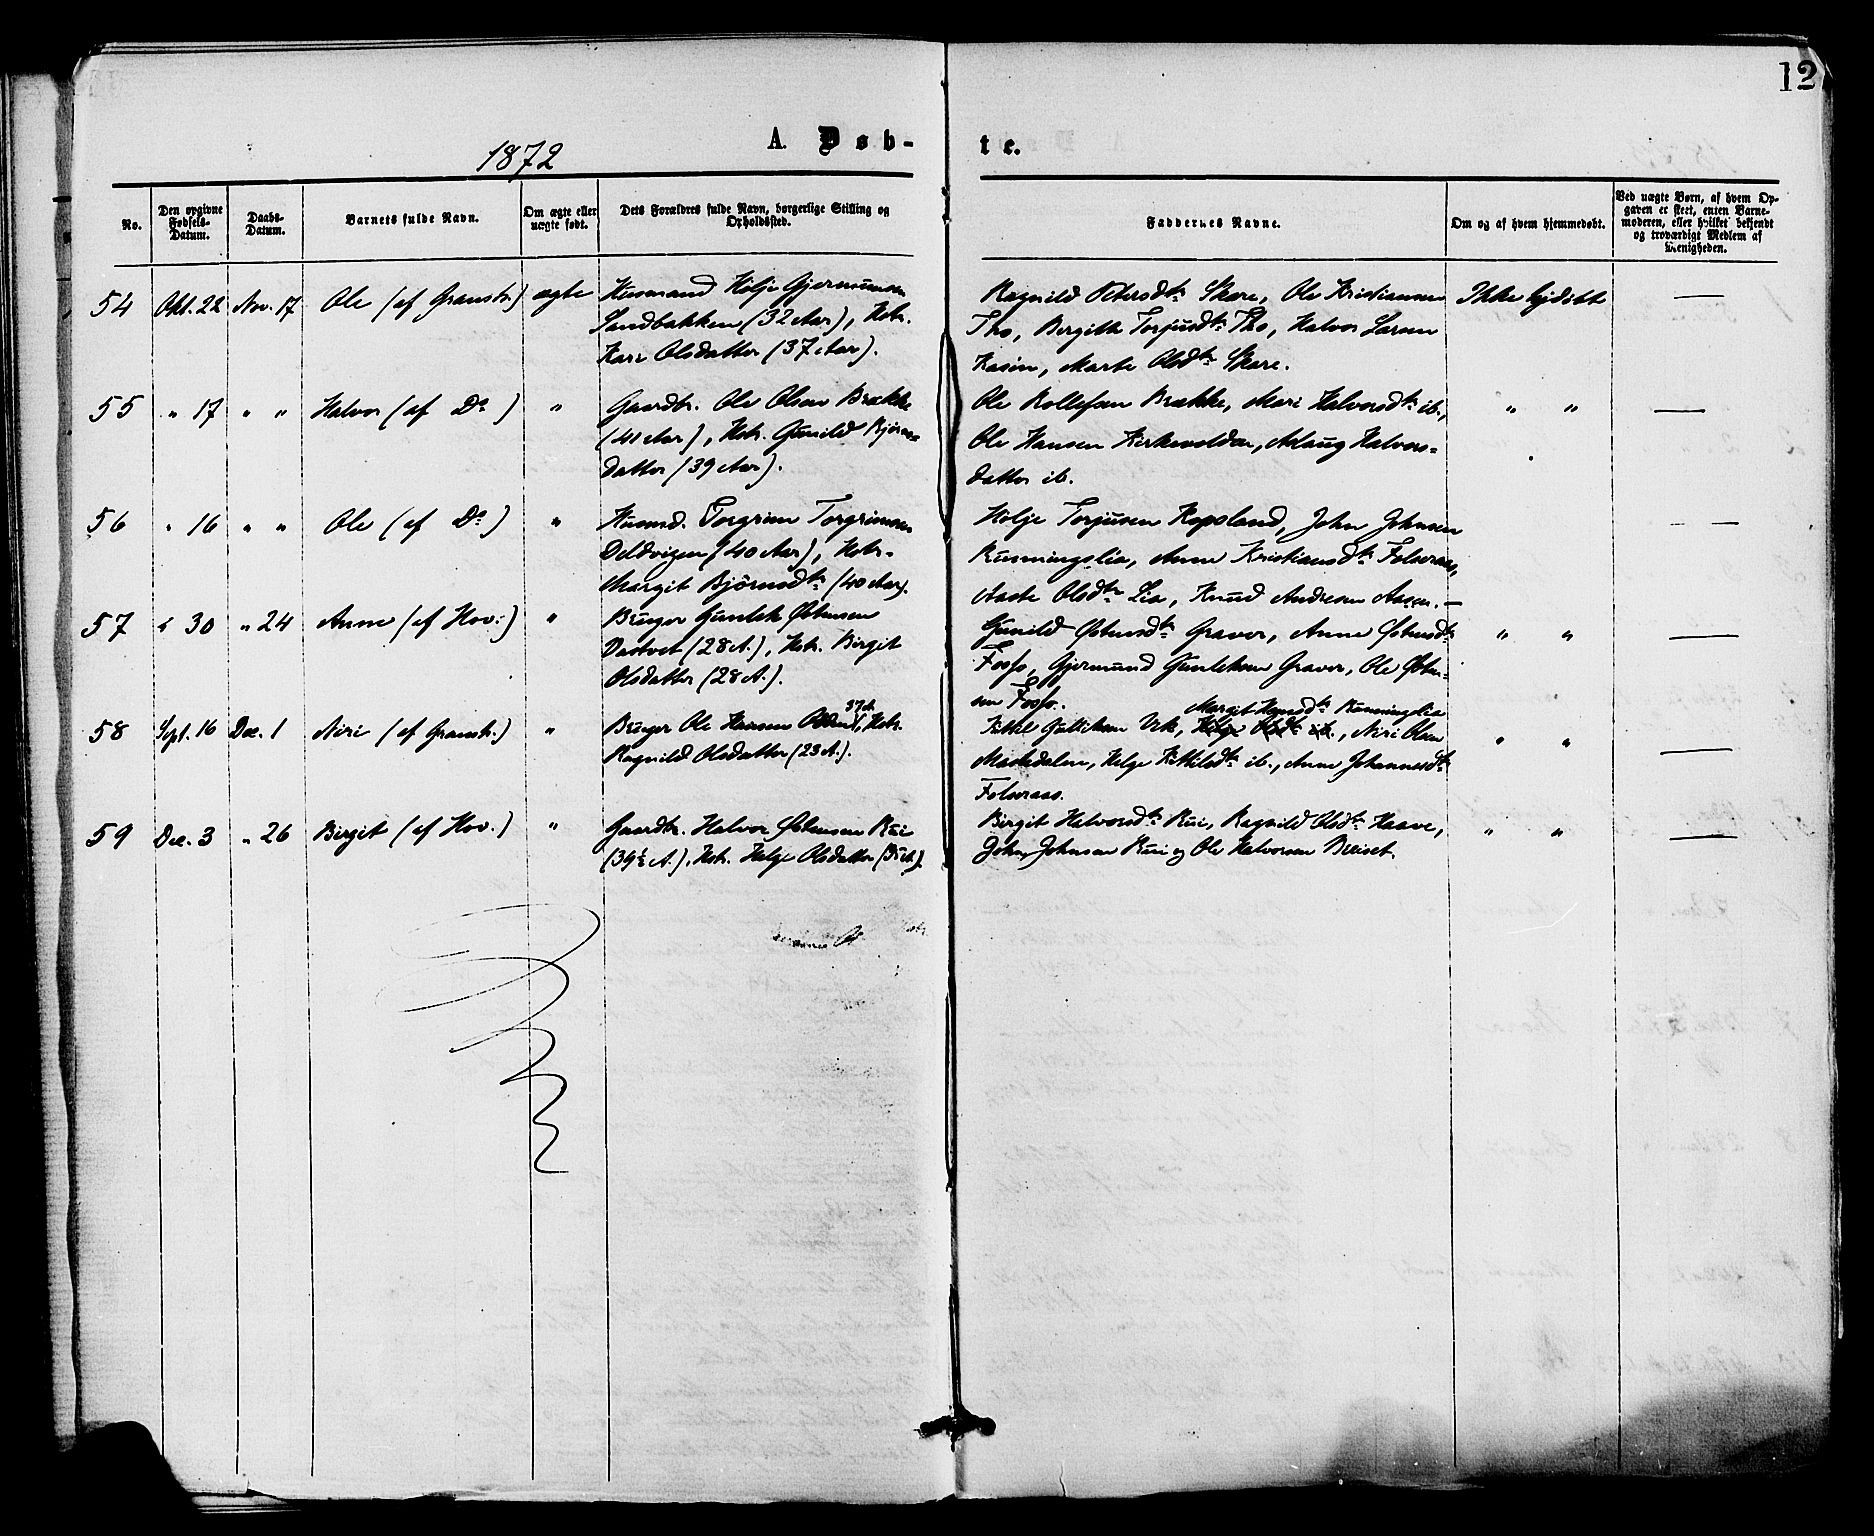 12
1872
A. Døb-
te.
No.
Den opgivne Fødsels-Datum.
Daabs-Datum.
Barnets fulde Navn.
Om ægte eller uægte født.
Dets Forældres fulde Navn, borgerlige Stilling og Opholdssted.
Faddernes Navne.
Om og af hvem hjemmedøbt.
Ved uægte Børn, af hvem Opgaven er skeet, enten Barnemoderen, eller hvilket bekjendt og troværdigt Medlem af Menigheden.
54 Okt. 22 Nov. 17 Ole (af Granshr.) ægte Husmand Hølje Gjermundsen
Sandbakken (32 Aar), Hstr.
Kari Olsdatter (37 Aar).
Ragnild Petersdtr Skare, Ole Kristiansen Ikke hjdøbt —
Tho, Bergith Torjusdtr Tho, Halvor Larsen
Kasin, Marte Olsdtr Skare.
55 " 17 " " Halvor (af Do) " Gaardbr. Ole Olsen Brække
(41 Aar), Hstr. Gunild Bjørns-
datter (39 Aar).
Ole Rollefsen Brække, Mari Halvorsdtr ib., " " —
Ole Hansen Kirkevolden, Aslaug Halvors-
datter ib.
56 " 16 " " Ole (af Do) " Husmd. Torgrim Torgrimsen
(40 Aar), Hstr.
Margit Bjørnsdtr (40 Aar).
Holje Torjusen Kopsland, John Johnsen — —
Rusmingslia, Anne Kristiansdtr Folseraas,
Aaste Olsdtr Lia, Knud Andresen Aasen. —
57 " 30 " 24 Anne (af Hov.) " Bruger Gunlek Østensen
Dastvet (28 A.), Hstr. Birgit
Olsdatter (28 A.).
Gunild Østensdtr Graver, Anne Østensdtr " " —
Fosso, Gjermund Gunleksen Graver, Ole Østen-
sen Fosso.
58 Sept. 16 Dec. 1 Niri (af Granshr.) " Bruger Ole Hansen 37 A., Hstr.
Ragnild Olsdatter (23 A.).
Margit Hansdtr Runningslia
Kittel Gulliksen Vik, Helge Olsdtr ib., Niri Olsen " " —
Mastedalen, Helge Kittilsdtr ib., Anne Johannesdtr
Folseraas.
59 Dec. 3 " 26 Birgit (af Hov.) " Gaardbr. Halvor Østensen Rui
(39½ A.), Hstr. Helge Olsdatter
Birgit Halvorsdtr Rui, Ragnild Olsdtr Haave, " " —
John Johnsen Rui og Ole Halvorsen Bleiset.